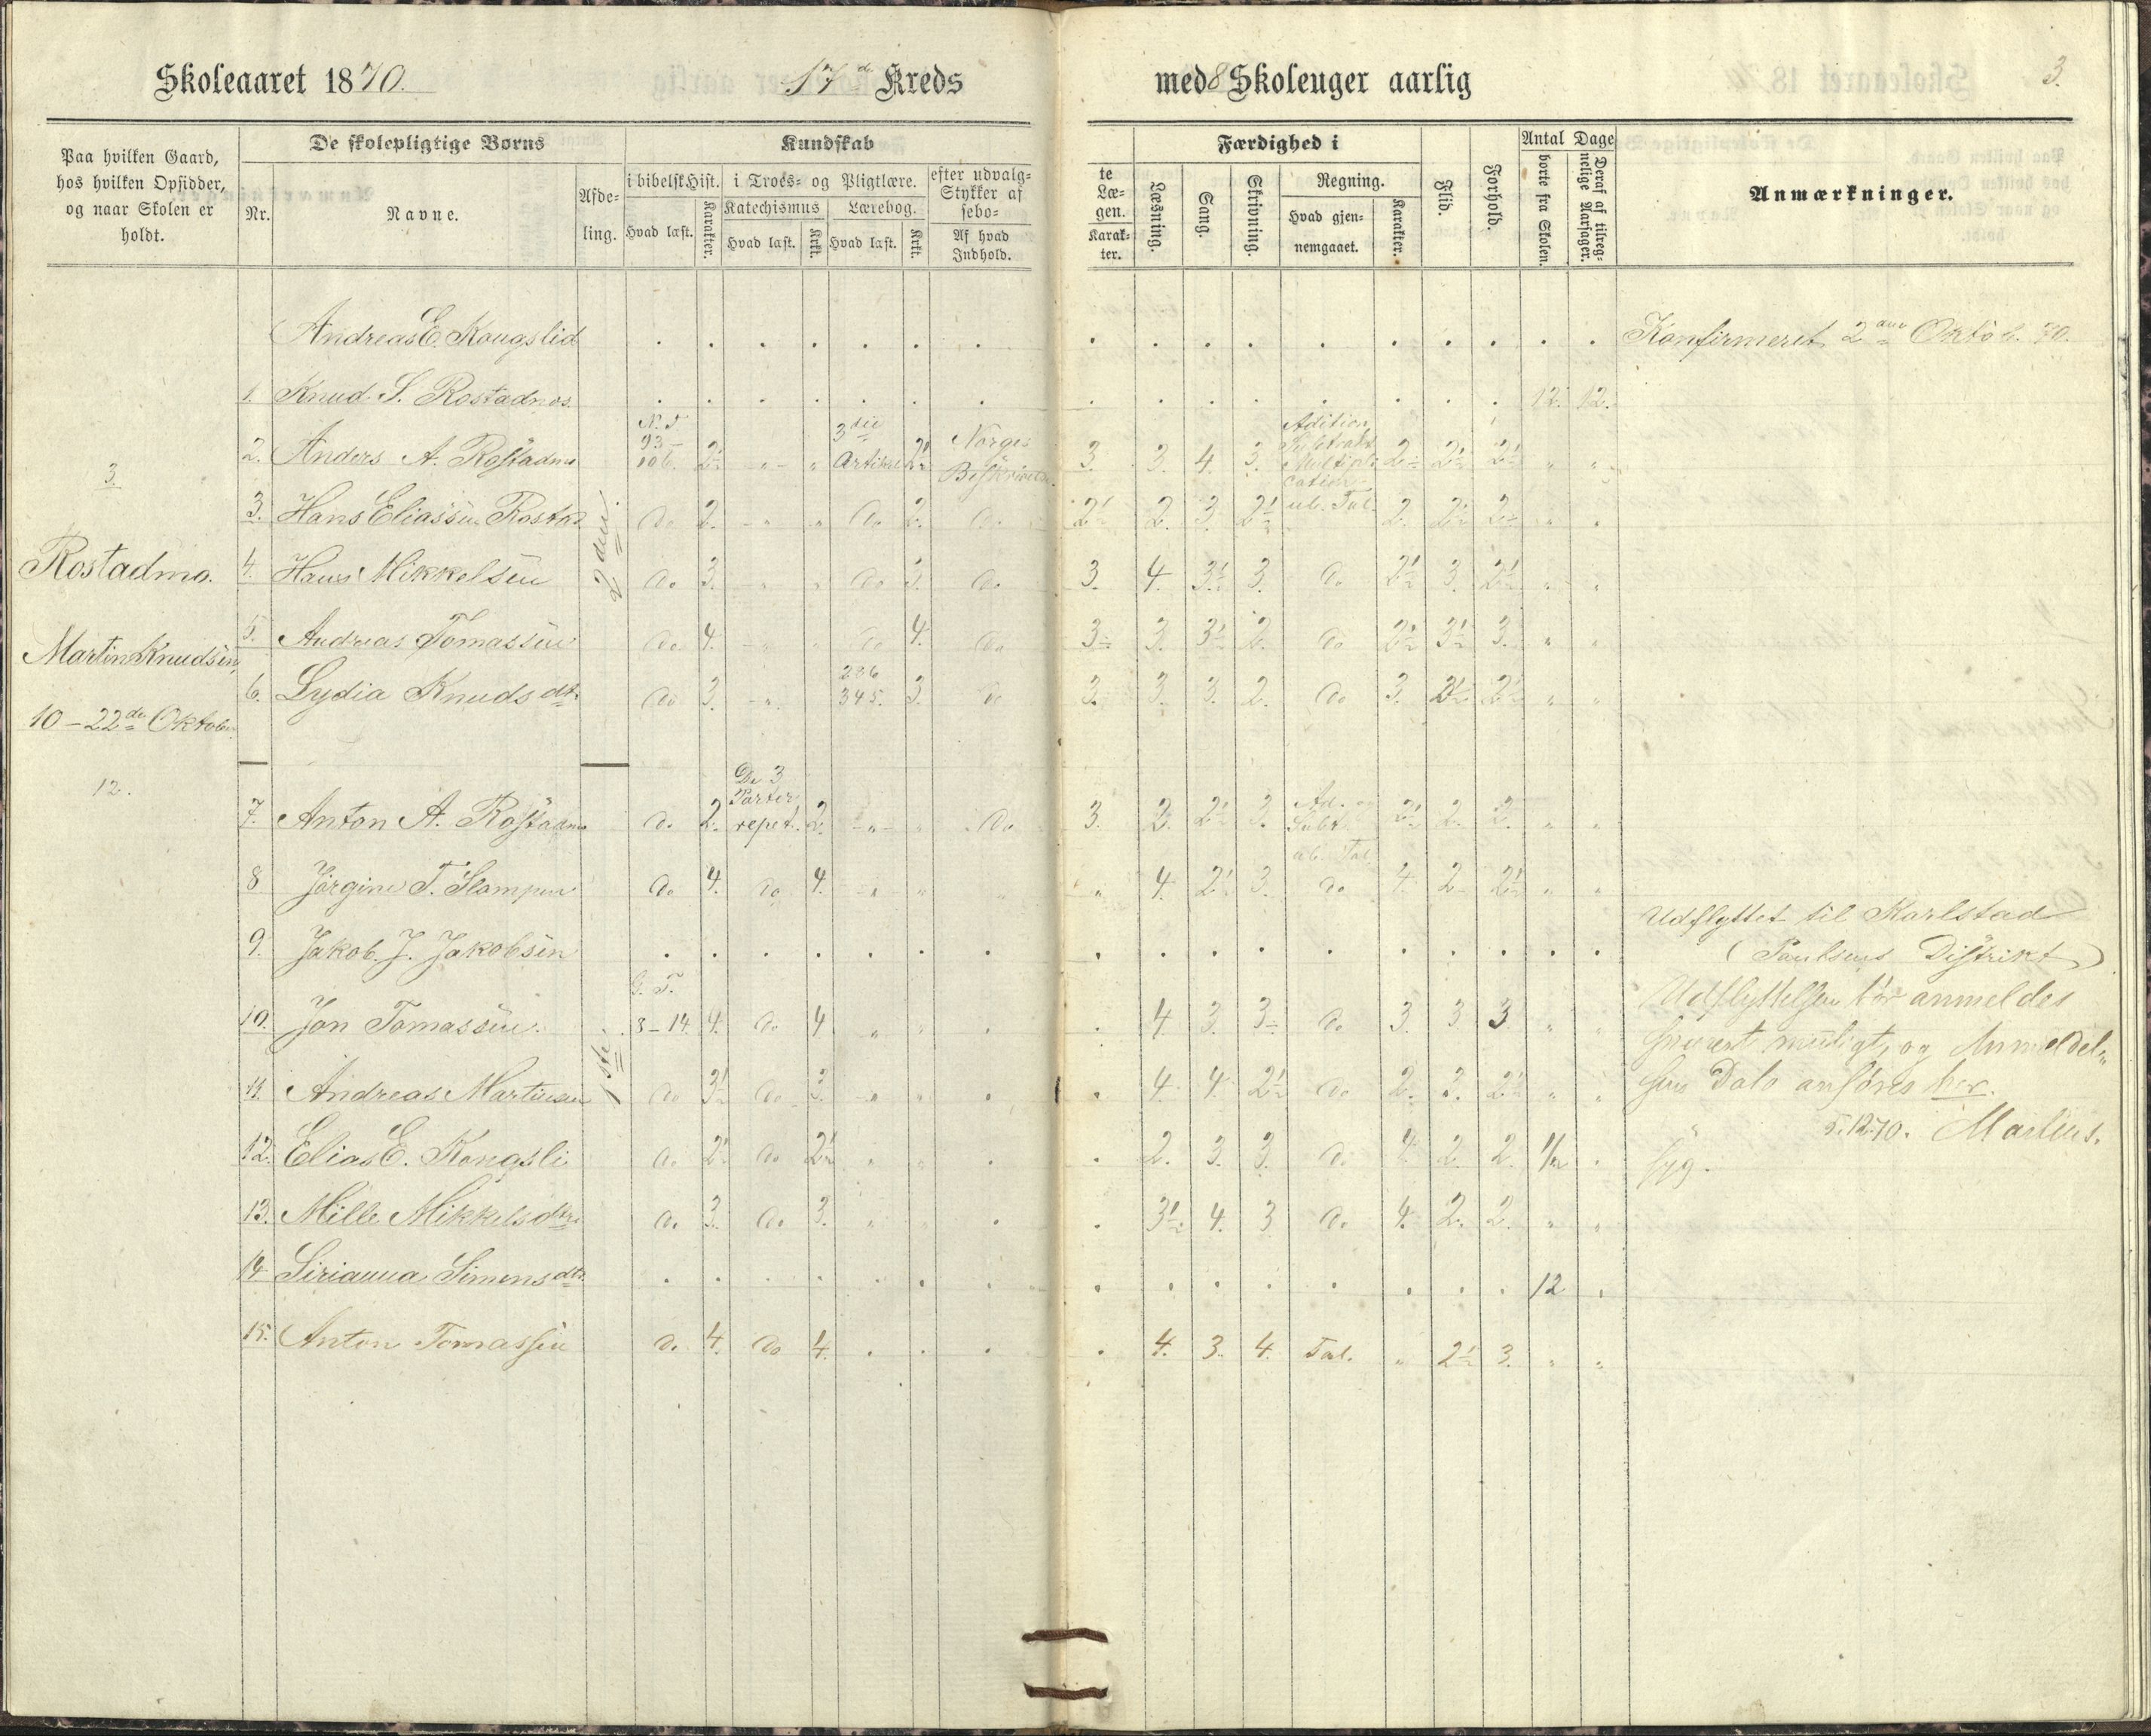 Skoleaaret 1870.
17de Kreds
med 8 Skoleuger aarlig
3.
Paa hvilken Gaard, hos hvilken Opsidder, og naar Skolen er holdt.
De skolepligtige Børns
Nr.
Navne.
Afdeling.
Kundskab
i bibelsk Hist.
Hvad læst.
Karakter.
i Troes- og Pligtlære.
Katechismus
Hvad læst.
Krkt.
Lærebog.
Hvad læst.
Krkt.
efter udvalgte Stykker af Læsebogen.
Af hvad Indhold.
Karakter.
Færdighed i
Læsning.
Sang.
Skrivning.
Regning.
Hvad gjennemgaaet.
Karakter.
Flid.
Forhold.
Antal Dage
borte fra Skolen.
Deraf af tilregnelige Aarsager.
Anmærkninger.
3.
Rostadmo.
Martin Knudsen,
10-22de Oktober.
12.
Andreas E. Kongslid . . . . . . . . . . . . . . . . . Konfirmeret 2den Oktob. 70.
1. Knud S. Rostadnes. . . . . . . . . . . . . . . . 12. 12.
2den
2. Anders A. Rostadmo N. T. 93-106. 2½ 3die Artikel 2½ Norges Beskrivelse. 3. 3. 4. 3. Adition, Subtrakt. Multiplication ub. Tal. 2 2½ 2½ " "
3. Hans Eliassen Rostad do 2. do 2. do 2½ 2. 3. 2½ 2. 2½ 2 " "
4. Hans Mikkelsen do 3. do 3. do 3. 4. 3½ 3. do 2½ 3. 2½ " "
5. Andreas Tomassen do 4. do 4. do 3 3. 3½ 2. do 2½ 3½ 3. " "
6. Lydia Knudsdtr do 3. 345. 3. do 3. 3. 3. 2. do 3. 2½ 2½ " "
1ste
7. Anton A. Rostadmo do 2. De 3 Parter repet. 2. " " do 3. 3. 2½ 3. Ad. og Subt. ub. Tal. 2½ 2. 2. " "
8 Jørgine T. Slompen do 4. do 4. " " " 4. 2½ 3. do 4. 2 2½ " "
9. Jakob J. Jakobsen . . . . . . . . . . . . . . . . .
Udflyttet til Karlstad
(Paulsens Distrikt)
10. Jon Tomassen. G. T. 3-14. 4. do 4 " " . . 4. 3. 3 do 3. 3. 3 " "
Udflyttelsen bør anmeldes
snarest muligt, og Anmeldel-
sens Dato anføres her.
5.12.70. Martins.
11. Andreas Martinsen do 3½ do 3. " " . . 4. 4. 2½ do 2. 3. 2½ " "
12. Elias E. Kongsli do 2½ do 2½ " " . . 2. 3. 3. do 4. 2. 2. 1/12 . syg.
13. Mille Mikkelsdtr do 3. do 3. " " . . 3½ 4. 3 do 4. 2. 2. " "
14 Sirianna Simonsdtr. . . . . . . . . . . . . . . . 12 .
15. Anton Tomassen do 4. do 4. . . . . 4. 3. 4. Tal. " 2½ 3. " "